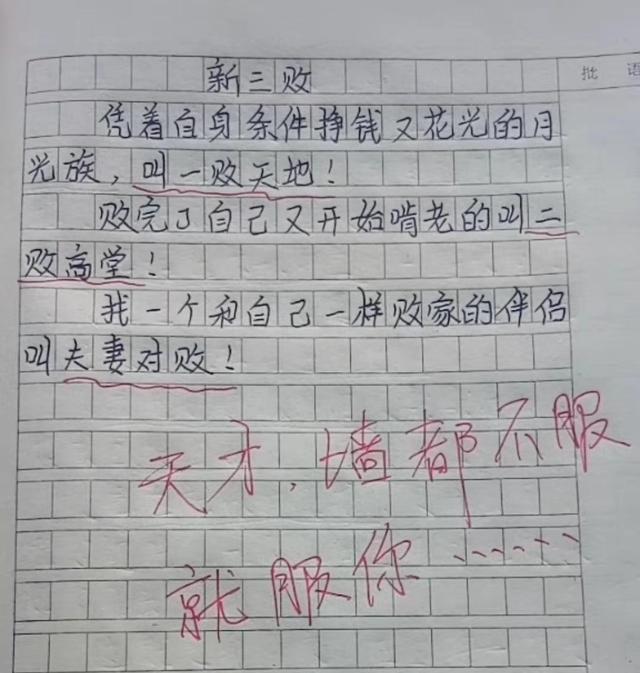 新三败
批 语
凭着自身条件挣钱又花光的月
光族，叫一败天地！
败完了自己又开始啃老的叫二
败高堂！
找一个和自己一样败家的伴侣
叫夫妻对败！
天才，墙都不服
就服你……